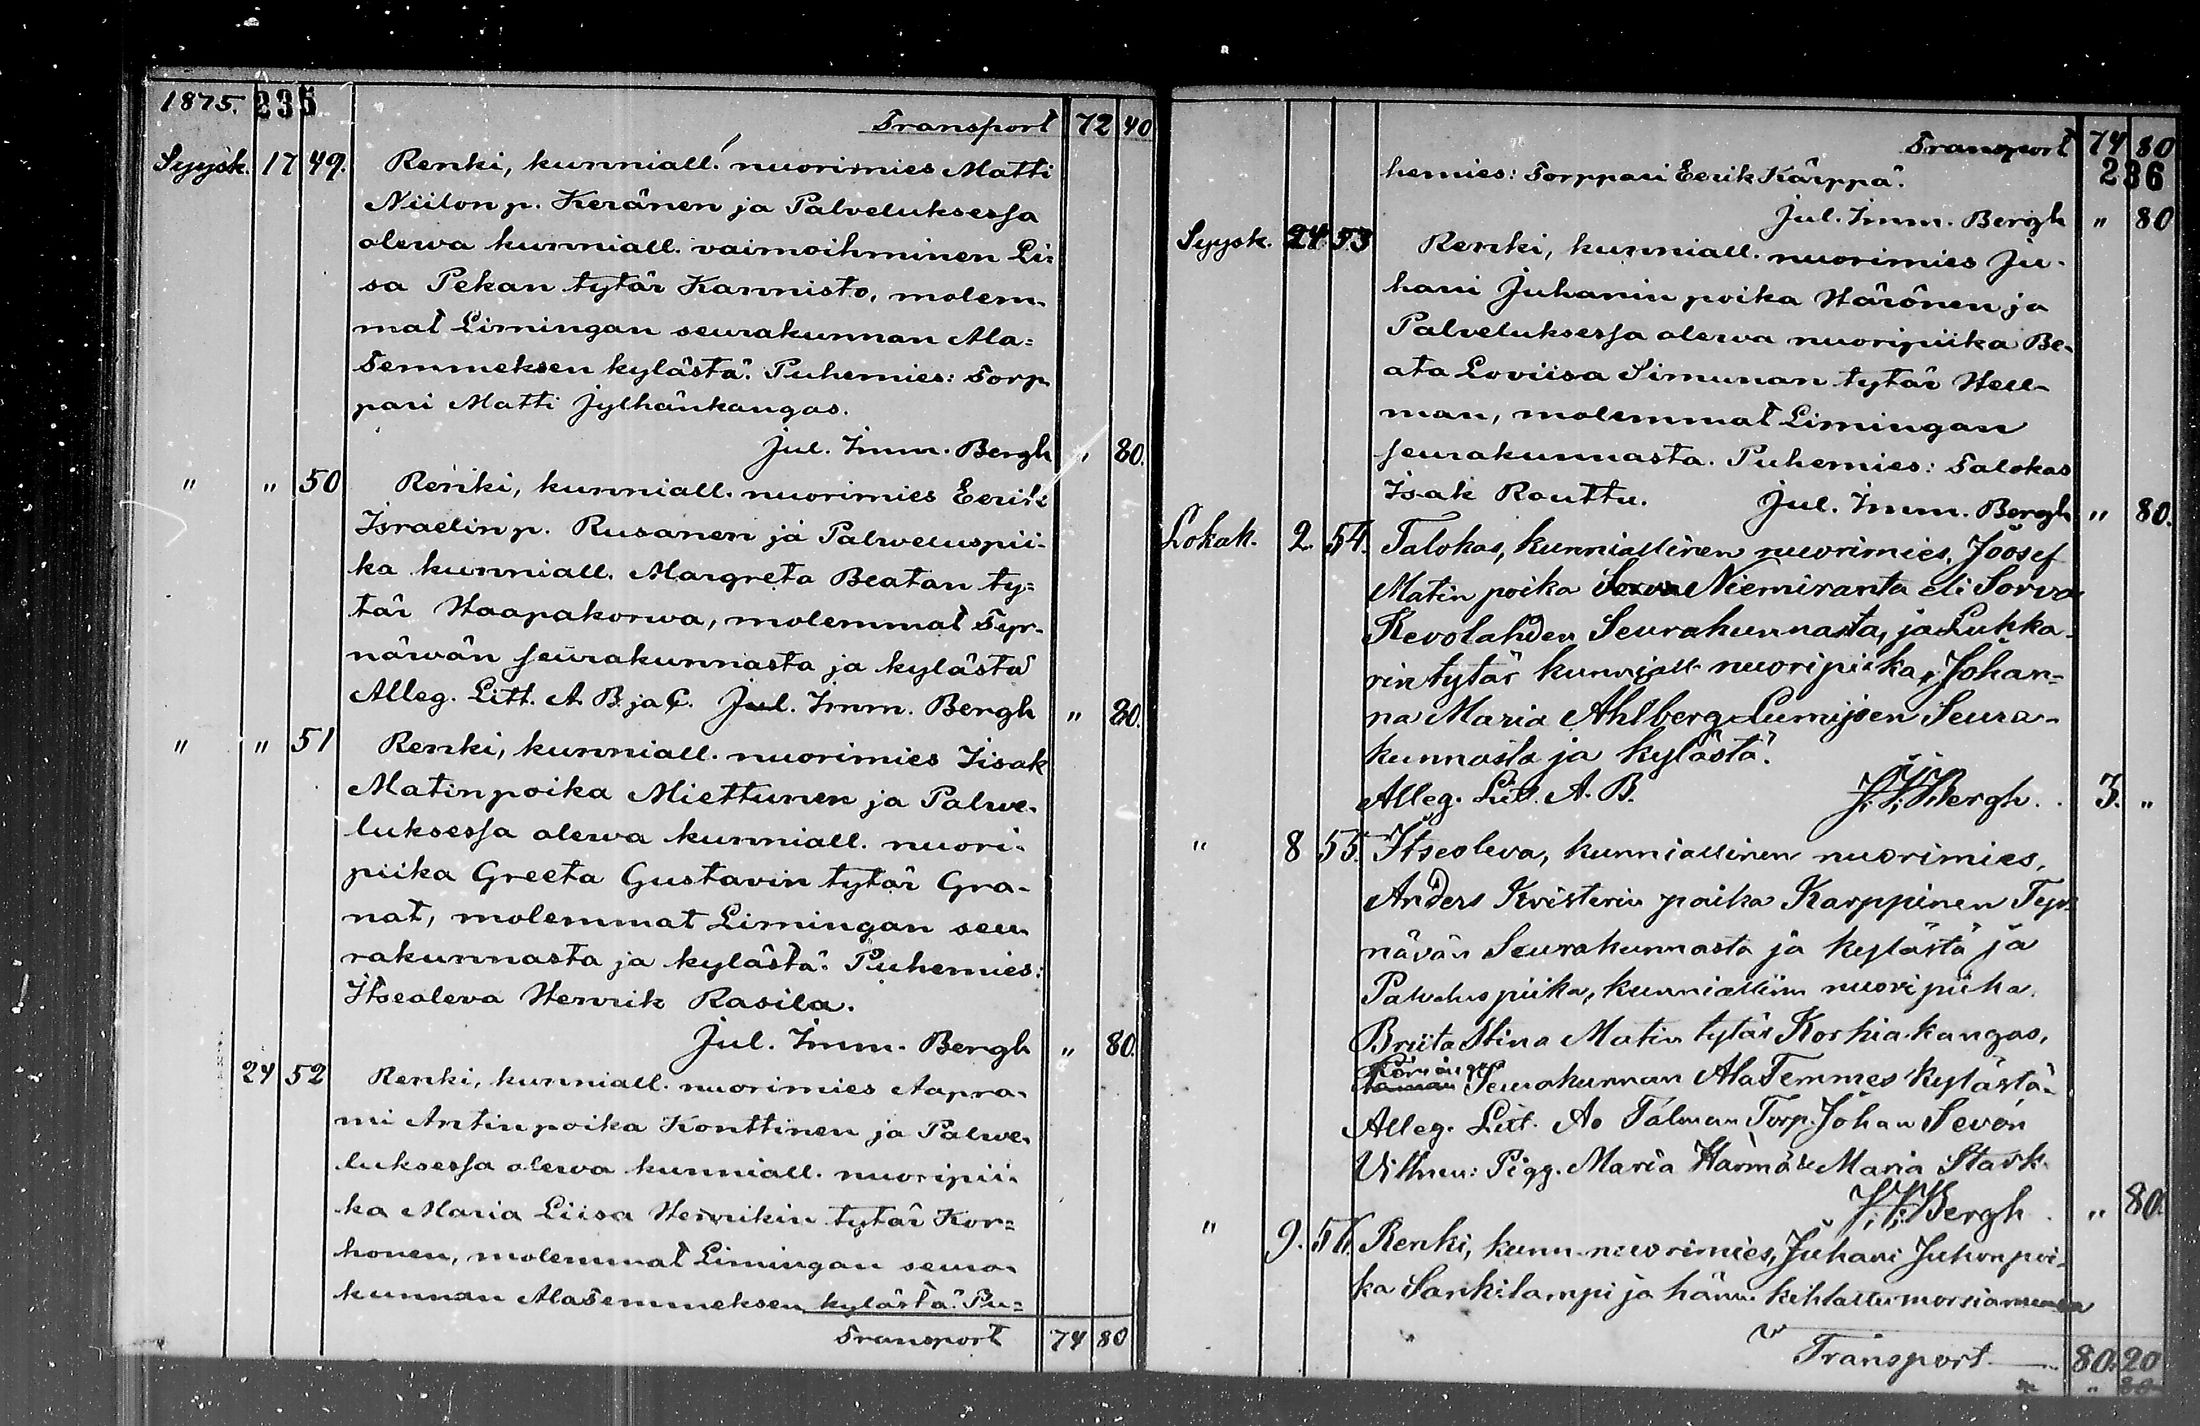 1875. 235
Transport 72 40
Syysk. 17 49. Renki, kunniall. nuorimies Matti
Niilon p. Keränen ja Palveluksessa
olewa kunniall. vaimoihminen Li=
sa Pekan tytär Kannisto, molem-
mat Limingan seurakunnan Ala=
Temmeksen kylästä. Puhemies: Torp-
pari Matti Jylhänkangas.
Jul. Imm. Bergh " 80.
" " 50 Renki, kunniall. nuorimies Eerik
Israelin p. Rusanen ja Palweluspii-
ka kunniall. Margreta Beatan ty=
tär Haapakorwa, molemmat Tyr-
näwän seurakunnasta ja kylästä
Alleg. Litt. A. B. ja C. Jul. Imm. Bergh " 80.
" " 51 Renki, kunniall. nuorimies Iisak
Matinpoika Miettunen ja Palwe-
luksessa olewa kunniall. nuori-
piika Greeta Gustavin tytär Gra-
nat, molemmat Limingan seu-
rakunnasta ja kylästä. Puhemies:
Itseoleva Henrik Rasila.
Jul. Imm. Bergh " 80.
24 52 Renki, kunniall. nuorimies Aapra-
mi Antinpoika Konttinen ja Palwe-
luksessa olewa kunniall. nuoripii-
ka Maria Liisa Henrikin tytär Kor=
honen, molemmat Limingan seura-
kunnan Alatemmeksen kylästä. Pu=
Transport 74 80
Transport 74 80
236
hemies: Torppari Eerik Kärppä.
Jul. Imm. Bergh " 80
Syysk. 24 53 Renki, kunniall. nuorimies Ju-
hani Juhanin poika Härönen ja
Palveluksessa olewa nuoripiika Be-
ata Loviisa Simunan tytär Hell-
man, molemmat Limingan
seurakunnasta. Puhemies: Talokas
Isak Rauttu. Jul. Imm. Bergh " 80.
Lokak. 2. 54. Talokas, kunniallinen nuorimies, Joosef
Matin poika Niemiranta eli Sorva
Revolahden Seurakunnasta, ja Lukka-
rin tytär kunniall nuoripiika, Johan=
na Maria Ahlberg Lumijoen Seura-
kunnasta ja kylästä.
Alleg. Litt. A. B. J. I. Bergh. 3. "
" 8 55. Itseoleva, kunniallinen nuorimies,
Anders Kristerin poika Karppinen Tyr=
nävän Seurakunnasta ja kylästä ja
Palveluspiika, kunniallinen nuoripiika
Briita Stina Matin tytär Korhiakangas,
Limingan Seurakunnan AlaTemmes kylästä.
Alleg. Litt. A. Talman Torp. Johan Sevón
Vittnen: Pigg. Maria Härmä & Maria Stark.
J. I. Bergh " 80.
" 9. 56. Renki, kunn. nuorimies, Juhani Juhonpoi-
ka Sarkilampi ja hänen kihlattu morsiamensa
Transport 80. 20